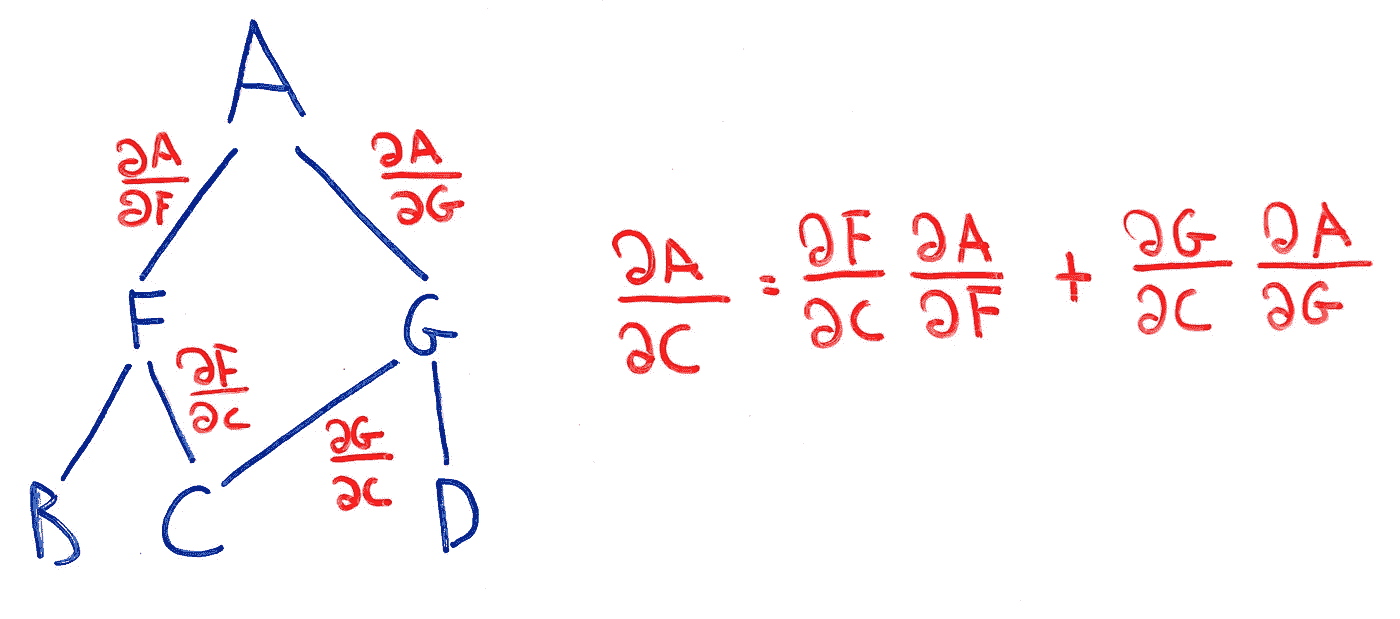 A
∂A/∂F ∂A/∂G
F G
∂F/∂C ∂G/∂C
B C D
∂A/∂C = ∂F/∂C ∂A/∂F + ∂G/∂C ∂A/∂G